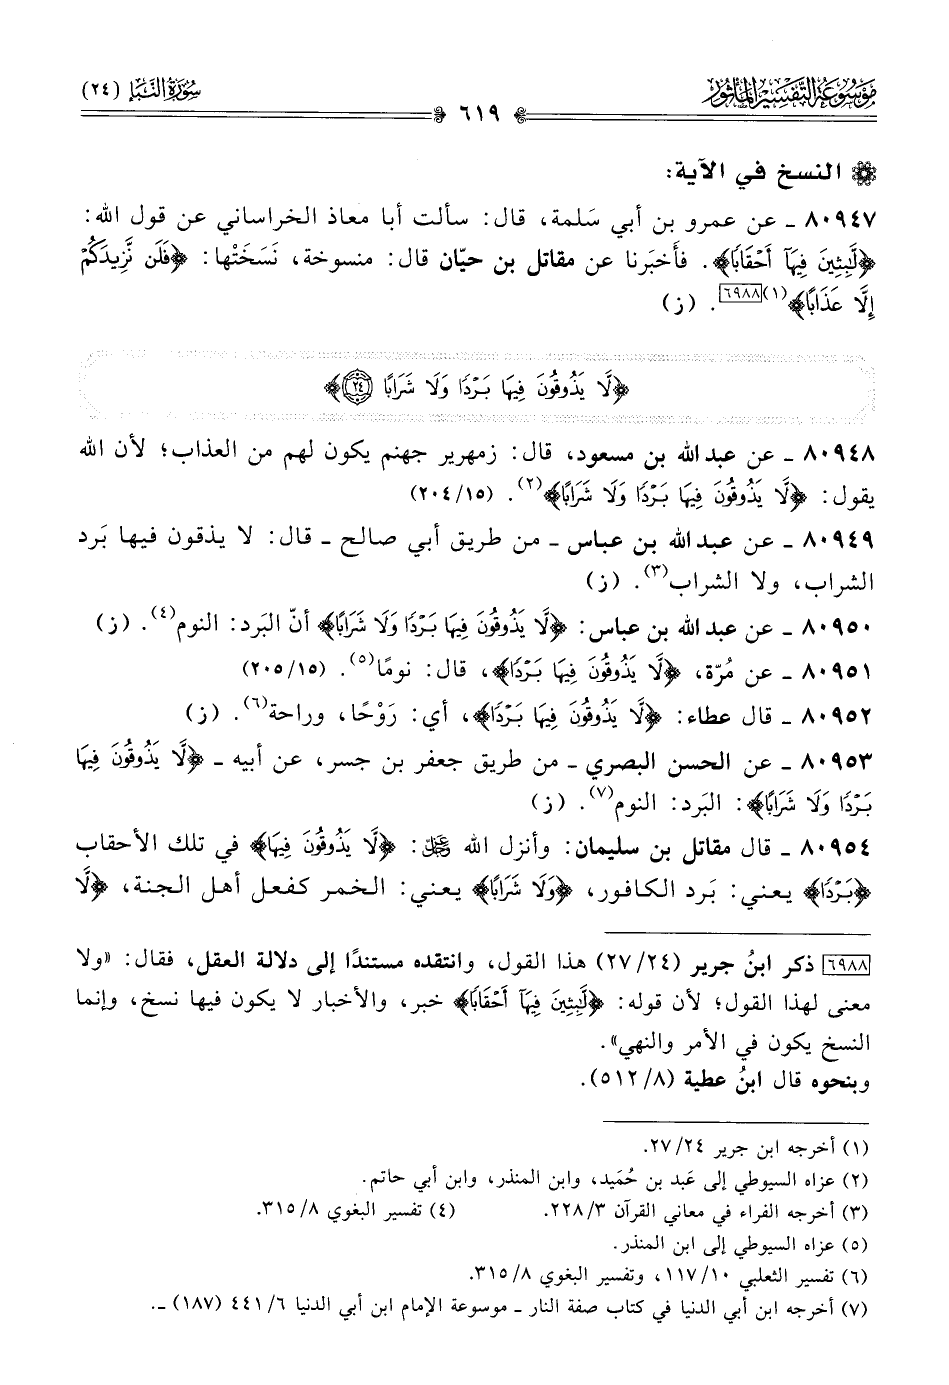 مَوْسُوعَةُ التَّفْسِيرِ المَأْثُورِ
سُورَةُ النَّبَإِ (٢٤)
٦١٩
النسخ في الآية:
٨٠٩٤٧ ـ عن عمرو بن أبي سَلمة، قال: سألت أبا معاذ الخراساني عن قول الله:
﴿لَّٰبِثِينَ فِيهَآ أَحْقَابًا﴾. فأَخبَرنا عن مقاتل بن حيّان قال: منسوخة، نَسَخَتْها: ﴿فَلَن نَّزِيدَكُمْ
إِلَّا عَذَابًا﴾(١)[٦٩٨٨]. (ز)
﴿لَّا يَذُوقُونَ فِيهَا بَرْدًا وَلَا شَرَابًا ٢٤﴾
٨٠٩٤٨ ـ عن عبد الله بن مسعود، قال: زمهرير جهنم يكون لهم من العذاب؛ لأن الله
يقول: ﴿لَّا يَذُوقُونَ فِيهَا بَرْدًا وَلَا شَرَابًا﴾(٢). (١٥/ ٢٠٤)
٨٠٩٤٩ ـ عن عبد الله بن عباس ـ من طريق أبي صالح ـ قال: لا يذقون فيها بَرد
الشراب، ولا الشراب(٣). (ز)
٨٠٩٥٠ ـ عن عبد الله بن عباس: ﴿لَّا يَذُوقُونَ فِيهَا بَرْدًا وَلَا شَرَابًا﴾ أنّ البَرد: النوم(٤). (ز)
٨٠٩٥١ ـ عن مُرّة، ﴿لَّا يَذُوقُونَ فِيهَا بَرْدًا﴾، قال: نومًا(٥). (١٥/ ٢٠٥)
٨٠٩٥٢ ـ قال عطاء: ﴿لَّا يَذُوقُونَ فِيهَا بَرْدًا﴾، أي: رَوْحًا، وراحة(٦). (ز)
٨٠٩٥٣ ـ عن الحسن البصري ـ من طريق جعفر بن جسر، عن أبيه ـ ﴿لَّا يَذُوقُونَ فِيهَا
بَرْدًا وَلَا شَرَابًا﴾: البَرد: النوم(٧). (ز)
٨٠٩٥٤ ـ قال مقاتل بن سليمان: وأنزل الله ﷿: ﴿لَّا يَذُوقُونَ فِيهَا﴾ في تلك الأحقاب
﴿بَرْدًا﴾ يعني: بَرد الكافور، ﴿وَلَا شَرَابًا﴾ يعني: الخمر كفعل أهل الجنة، ﴿لَّا
[٦٩٨٨] ذكر ابنُ جرير (٢٤/ ٢٧) هذا القول، وانتقده مستندًا إلى دلالة العقل، فقال: «ولا
معنى لهذا القول؛ لأن قوله: ﴿لَّٰبِثِينَ فِيهَآ أَحْقَابًا﴾ خبر، والأخبار لا يكون فيها نسخ، وإنما
النسخ يكون في الأمر والنهي».
وبنحوه قال ابنُ عطية (٨/ ٥١٢).
(١) أخرجه ابن جرير ٢٤/ ٢٧.
(٢) عزاه السيوطي إلى عَبد بن حُمَيد، وابن المنذر، وابن أبي حاتم.
(٣) أخرجه الفراء في معاني القرآن ٣/ ٢٢٨. (٤) تفسير البغوي ٨/ ٣١٥.
(٥) عزاه السيوطي إلى ابن المنذر.
(٦) تفسير الثعلبي ١٠/ ١١٧، وتفسير البغوي ٨/ ٣١٥.
(٧) أخرجه ابن أبي الدنيا في كتاب صفة النار ـ موسوعة الإمام ابن أبي الدنيا ٦/ ٤٤١ (١٨٧) ـ.